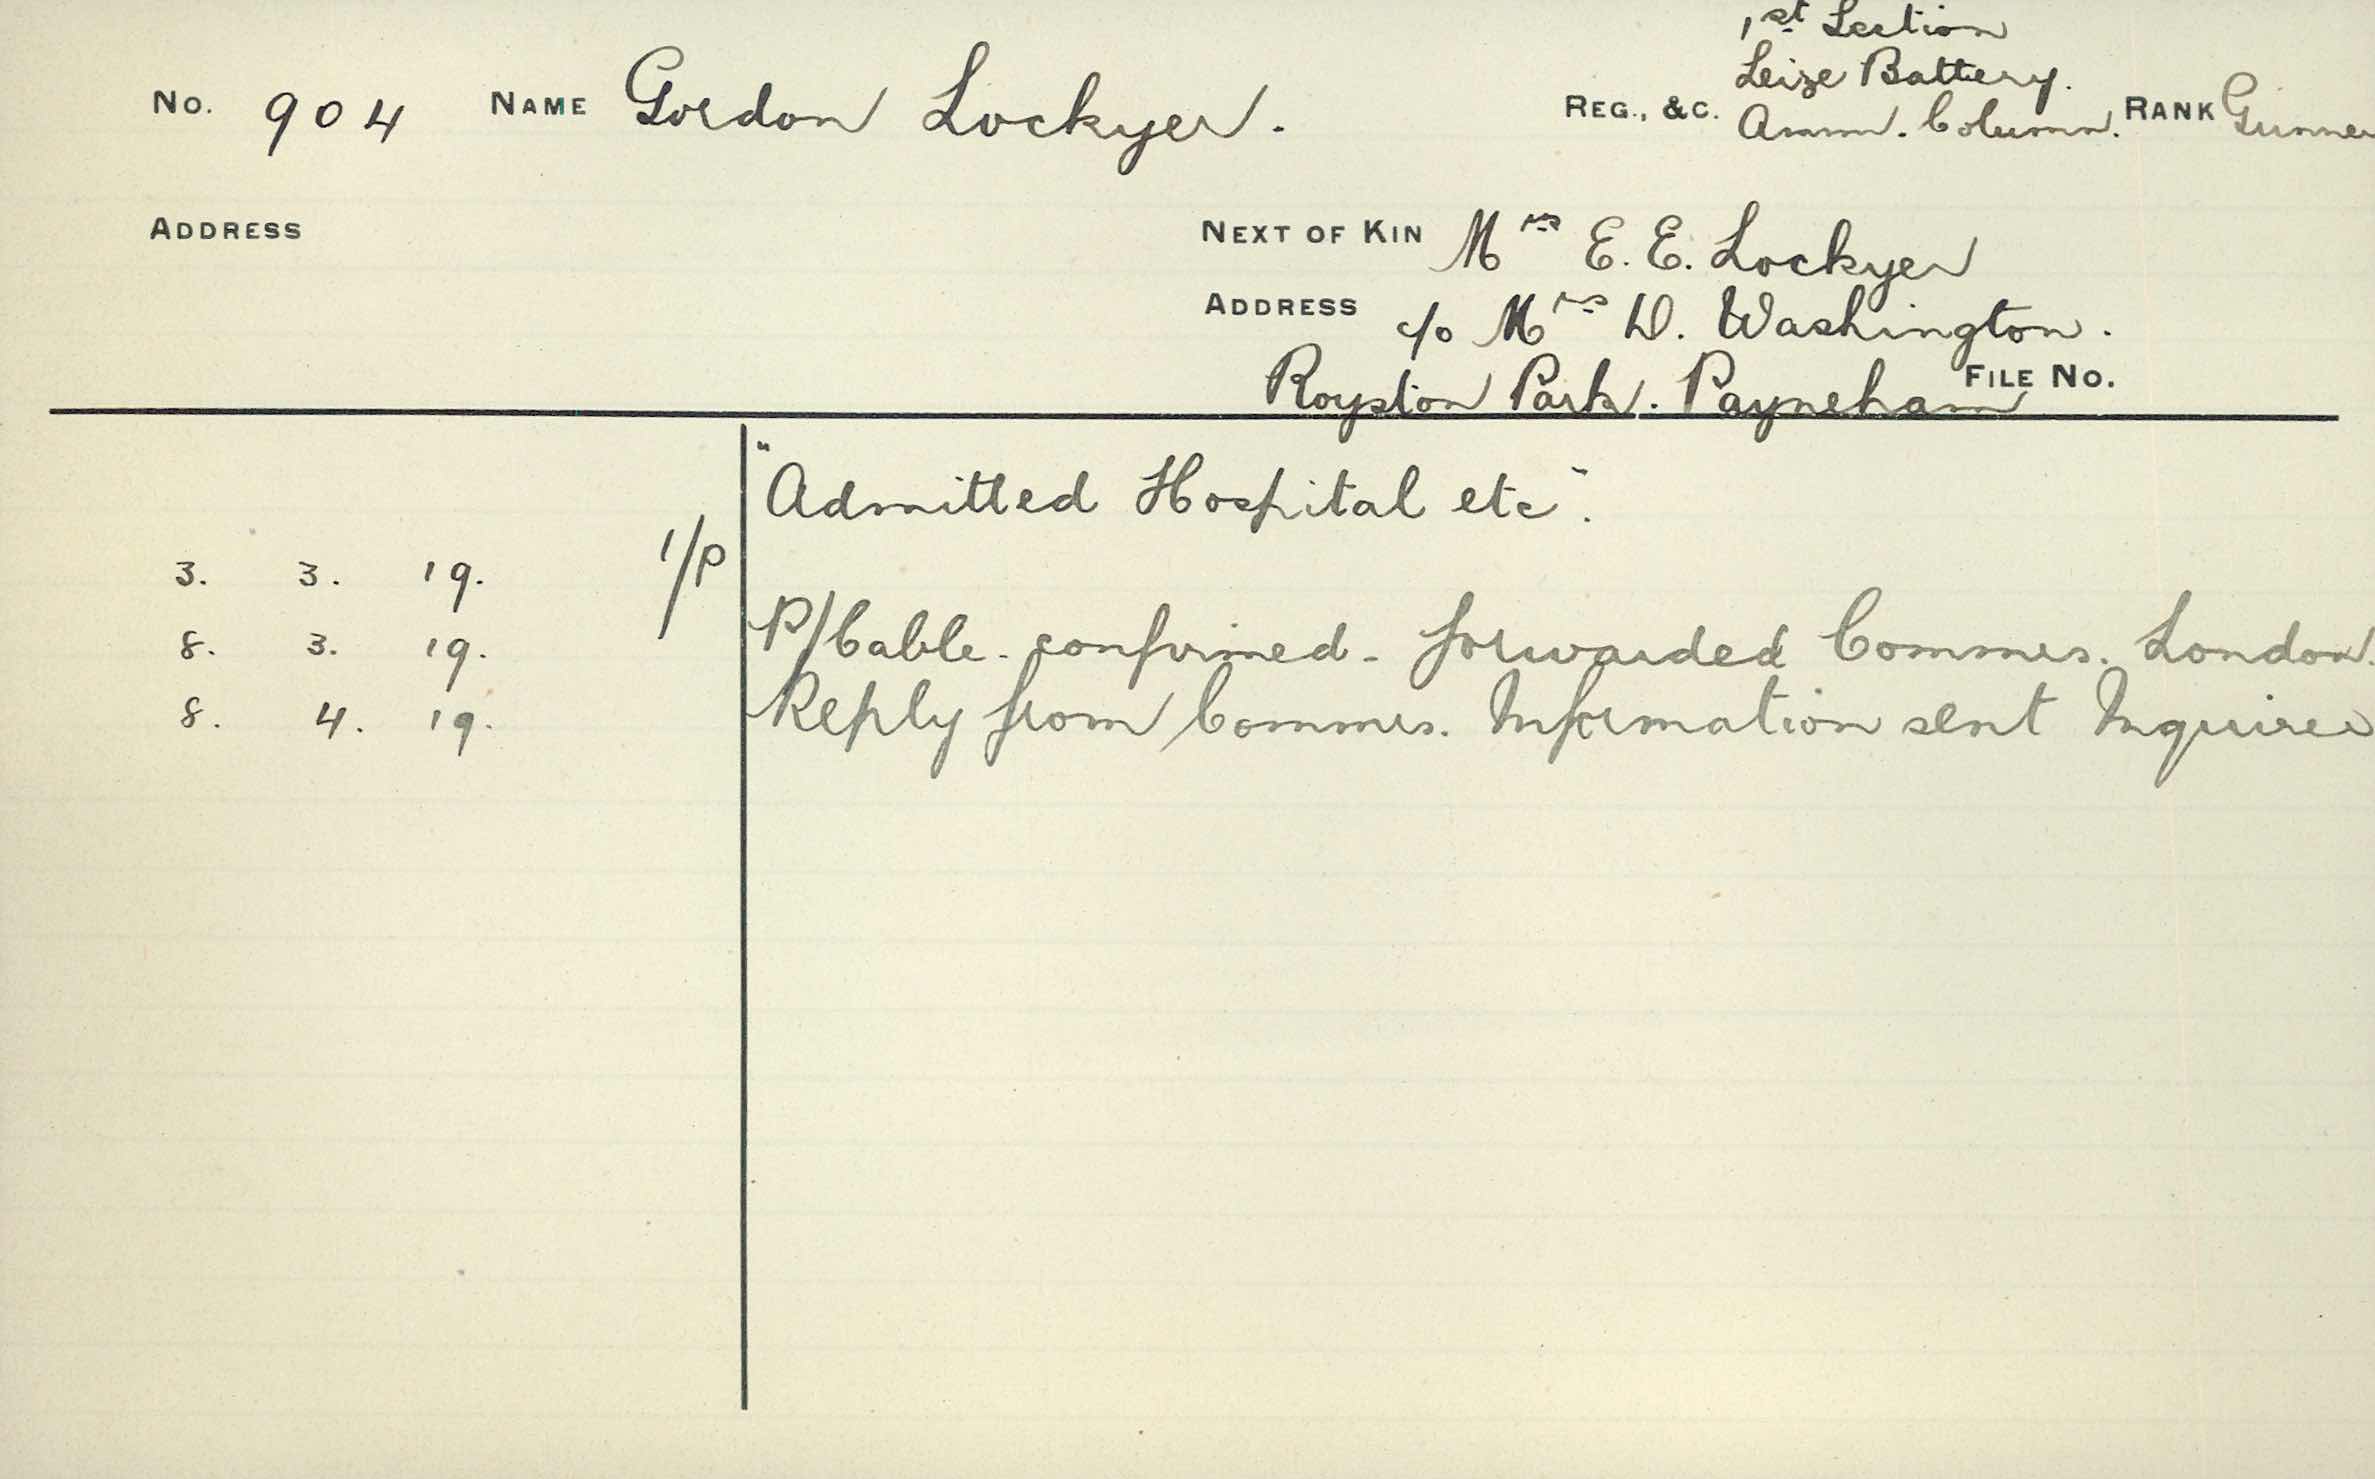 1st Section
Leize Battery.
No. 904 NAME Gordon Lockyer. REG., &C. Amm. Column. RANK Gunner
ADDRESS NEXT OF KIN Mrs E. E. Lockyer
ADDRESS c/o Mrs W. Washington.
Royston Park. Payneham FILE No.
"Admitted Hospital etc".
3. 3. 19. 1/P
8. 3. 19. P/Cable. confirmed - forwarded Commrs. London.
8. 4. 19. Reply from Commrs. Information sent Inquirer